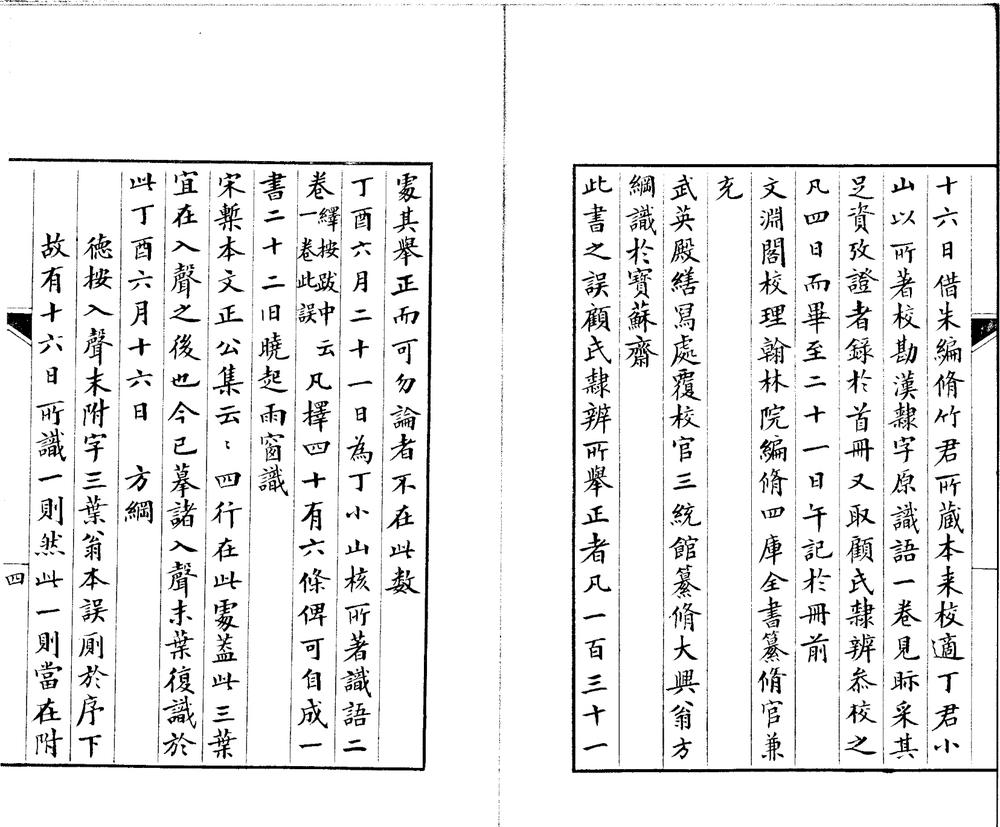 十六日借朱編脩竹君所蔵本来校適丁君小
山以所著校勘漢隸字原識語一卷見眎采其
足資攷證者録於首冊又取顧氏隷辨叅校之
凡四日而畢至二十一日午記於冊前
文淵閣校理翰林院編脩四庫全書纂脩官兼
充
武英殿繕寫處覆校官三統館纂脩大興翁方
綱識於寶蘇齋
此書之誤顧氏隷辨所舉正者凡一百三十一
處其舉正而可勿論者不在此数
丁酉六月二十一日為丁小山核所著識語二
卷繹按跋中云一卷此誤凡擇四十有六條俾可自成一
書二十二旧曉起雨窗識
宋槧本文正公集云〻四行在此處蓋此三葉
宜在入聲之後也今已摹諸入聲末葉復識於
此丁酉六月十六日 方綱
徳按入聲末附字三葉翁本誤厠於序下
故有十六日所識一則然此一則當在附
四